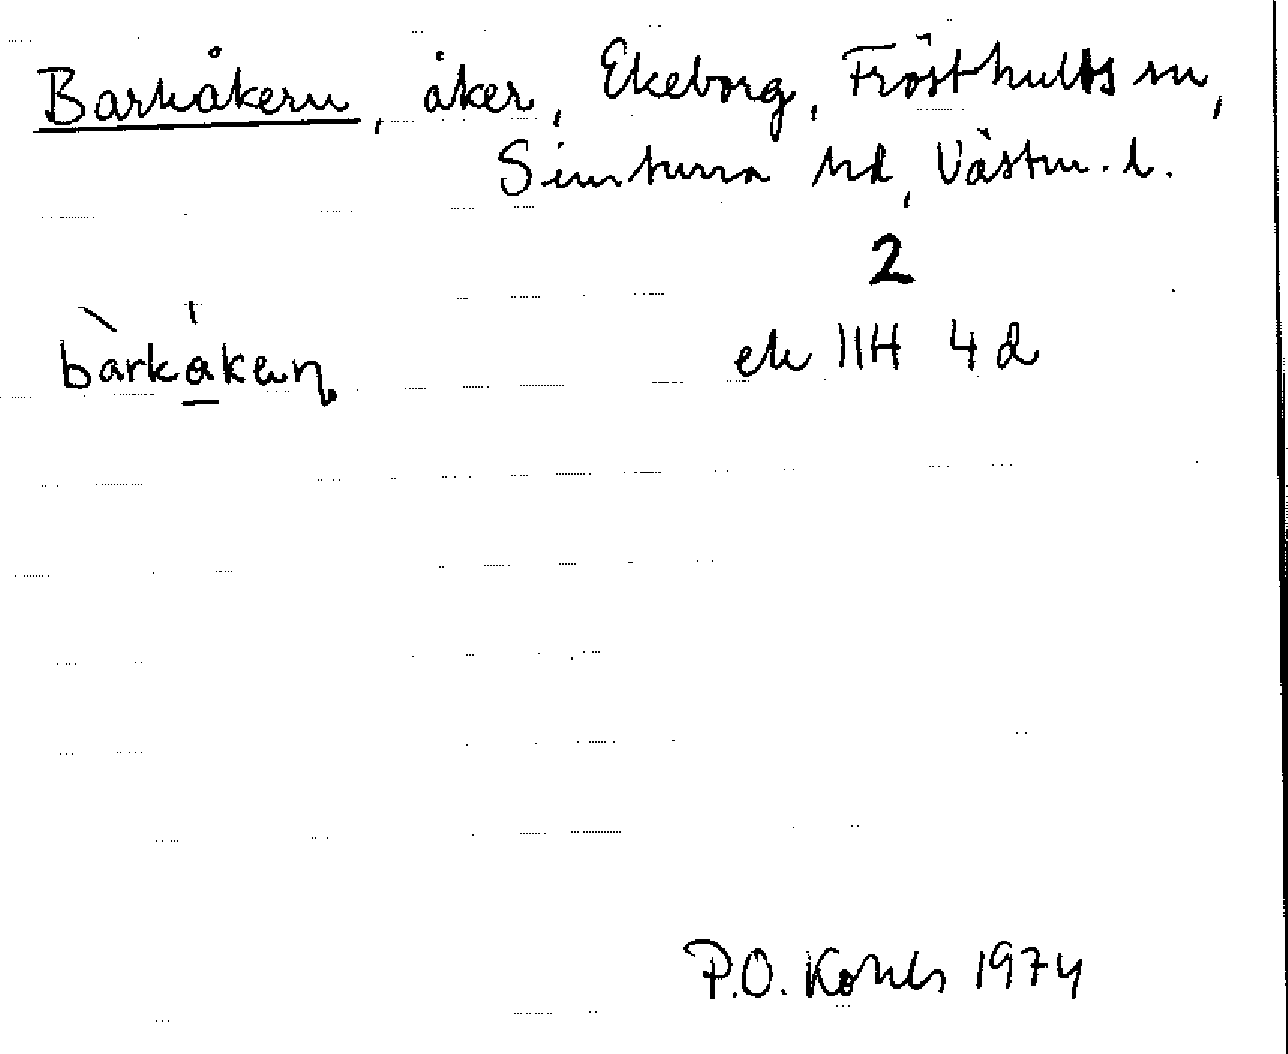 Barkåkern, åker, Ekeborg, Frösthults sn,
Simtuna hd, Västm. l.
2
bàrkåkern
ek 11H 4d
P.O. 1974